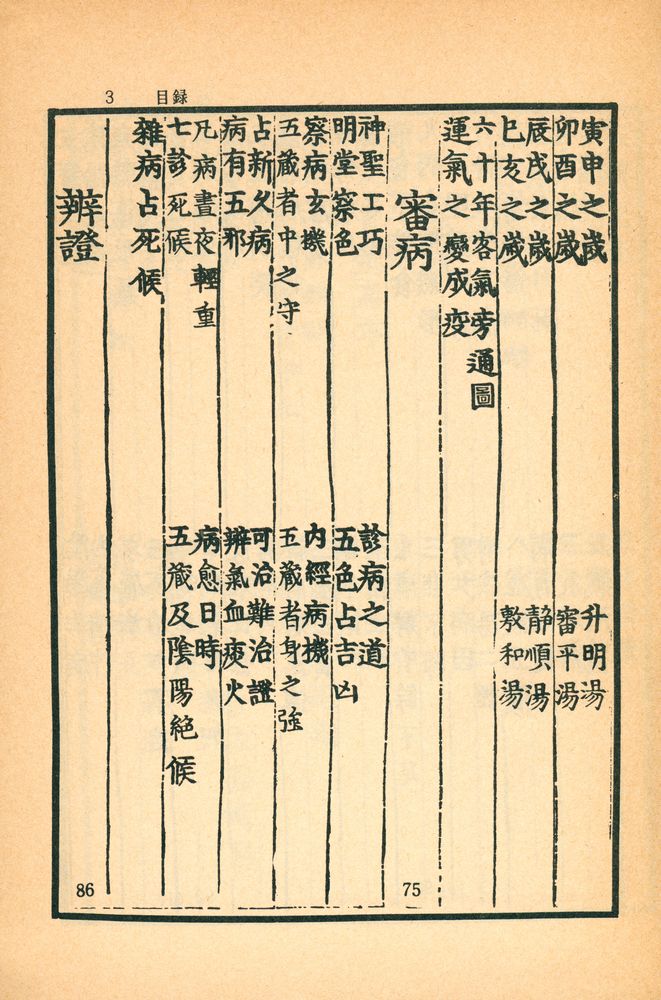 3 目録
寅申之歲 升明湯
卯酉之歲 審平湯
辰戌之歲 靜順湯
巳亥之歲 敷和湯
六十年客氣旁通圖
運氣之變成疫
審病 75
神聖工巧 診病之道
明堂察色 五色占吉凶
察病玄機 內經病機
五藏者中之守 五藏者身之强
占新久病 可治難治證
病有五邪 辨氣血痰火
凡病晝夜輕重 病愈日時
七診死候 五藏及陰陽絕候
雜病占死候
辨證 86